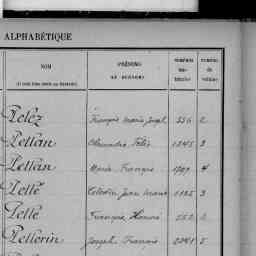 ALPHABÉTIQUE
NOM
PRÉNOMS
OU SURNOMS
NUMÉROS
matricules
NUMÉRO
du
volume
Pelez François Marie Joseph 556 2
Pellan Alexandre Félix 1245 3
Pellan Marie François 4
Pellé Célestin Jean Marie 1125 3
Pellé François Honoré 552 2
Pellerin Joseph Francis 2241 5